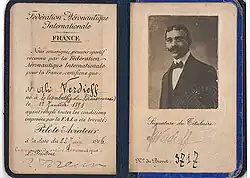 Fédération Aéronautique
Internationale
FRANCE
Nous soussignés, pouvoir sportif
reconnu par la Fédération
Aéronautique Internationale
pour la France, certifions que
M. ali Verdieff
né à
le 1er Janvier
ayant rempli toutes les conditions
imposées par la F.A.I. a été breveté
Pilote-Aviateur
à la date du 22 Juin 1916
Signature du Titulaire
No. du Brevet: 3717